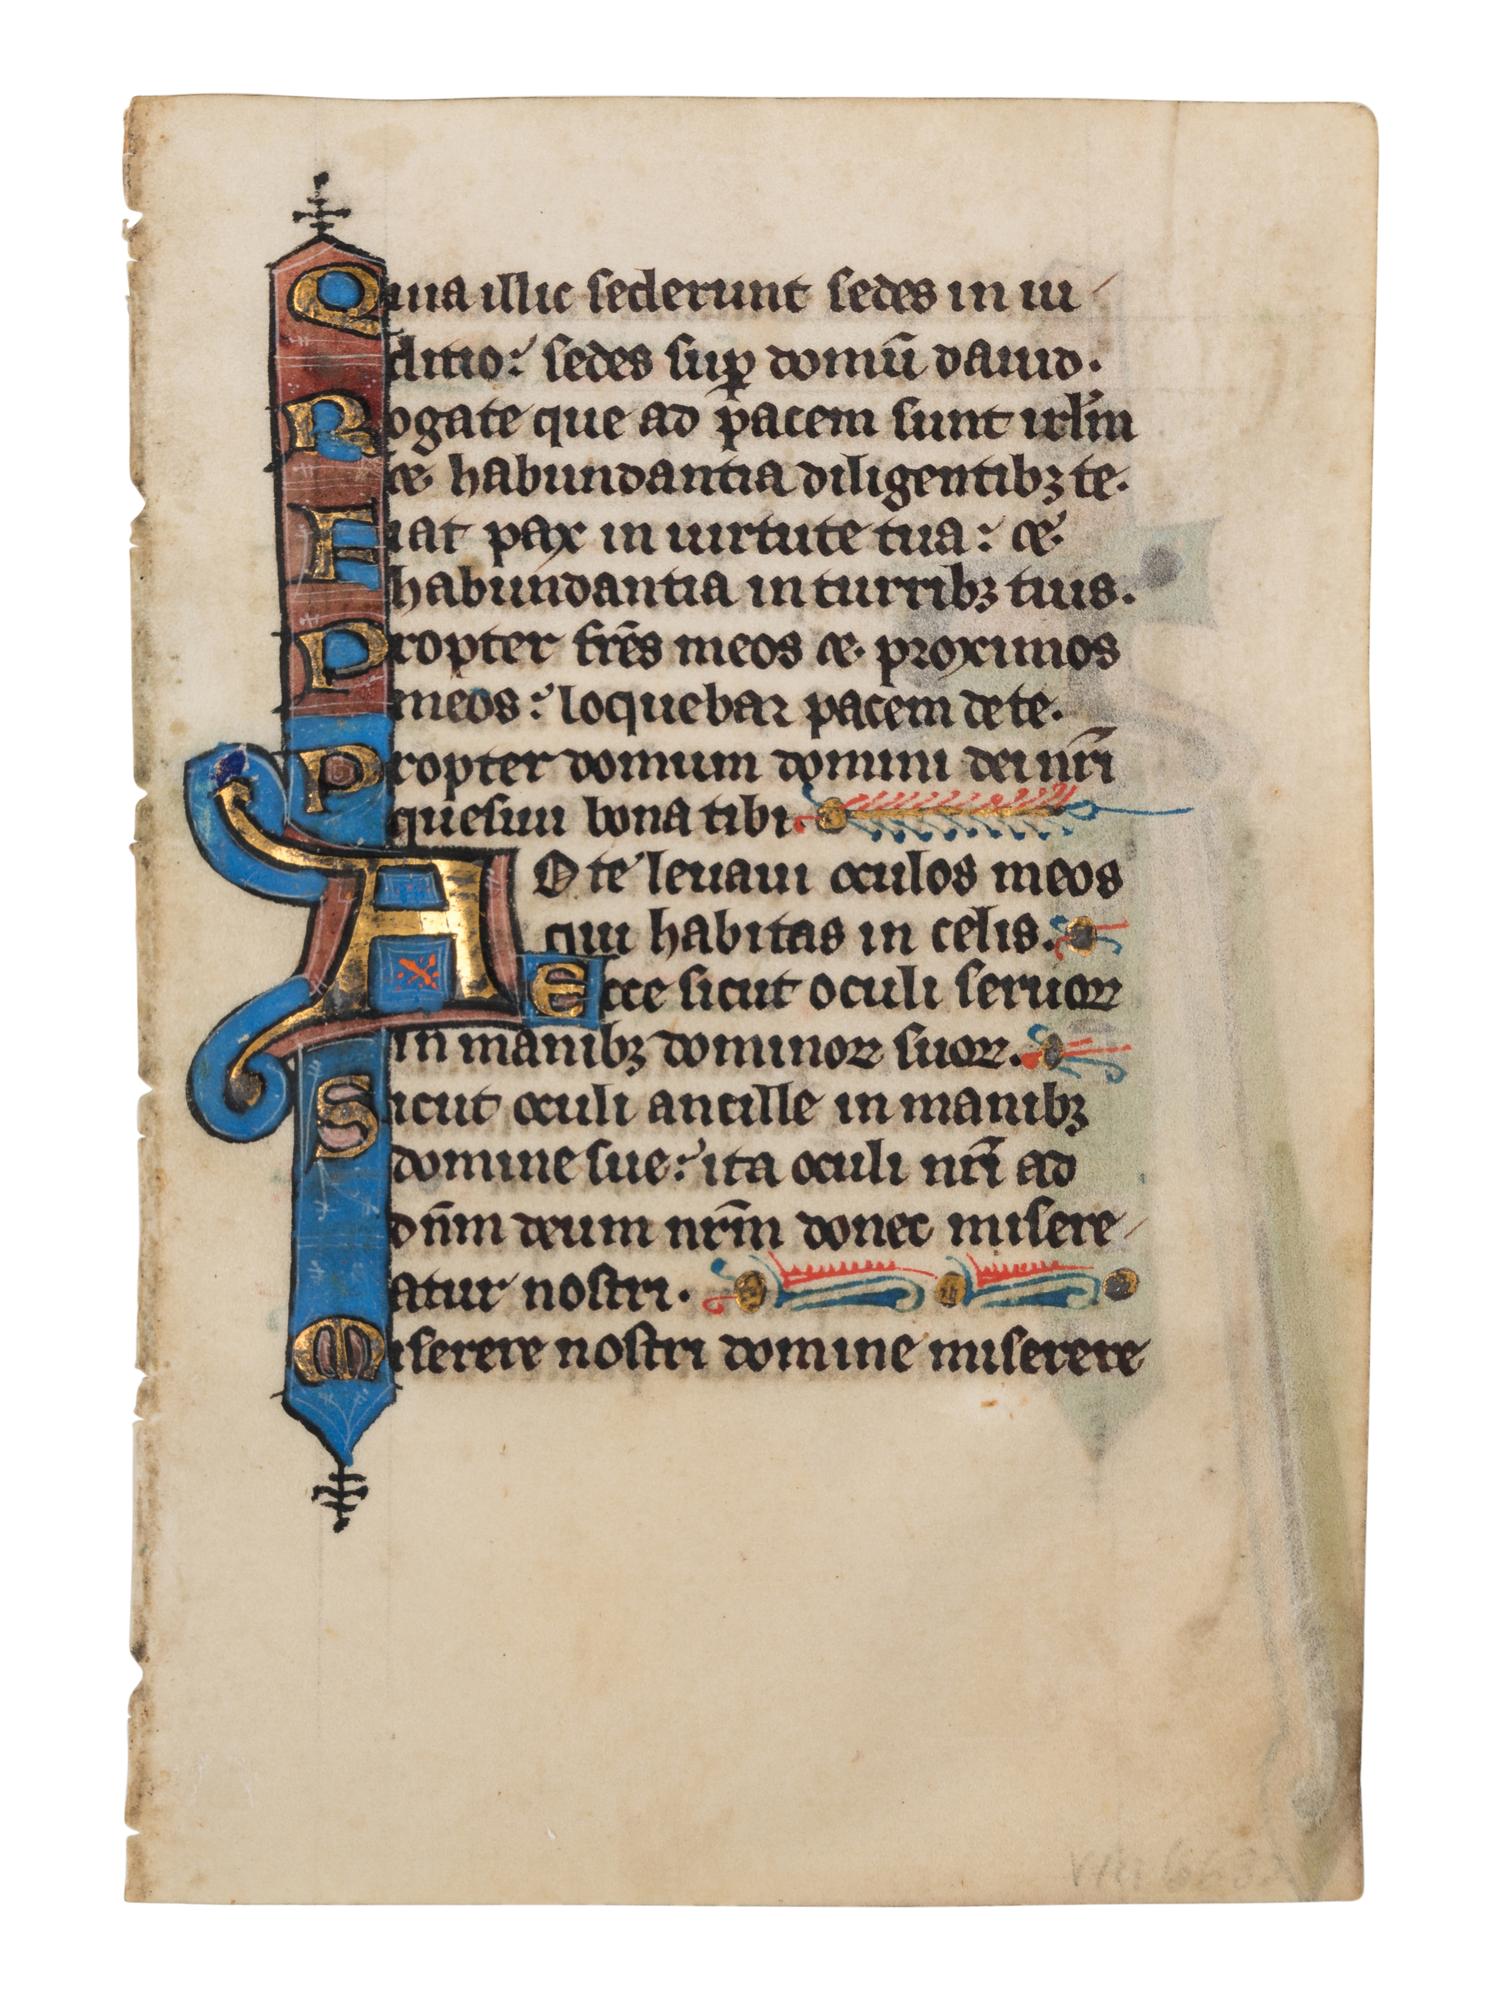 Quia illic sederunt sedes in iu
ditio: sedes sup̲ domū dauid.
Rogate que ad pacem sunt irl̄m
& habundantia diligentibꝫ te.
Fiat pax in uirtute tua: &
habundantia in turribꝫ tuis.
Propter fr̄es meos & proximos
meos: loquebar pacem de te.
Propter domum domini dei nr̄i
quesiui bona tibi.
AD te leuaui oculos meos
qui habitas in celis.
Ecce sicut oculi seruoꝝ
in manibꝫ dominoꝝ suoꝝ.
Sicut oculi ancille in manibꝫ
domine sue: ita oculi nr̄i ad
dn̄m deum nr̄m donec misere
atur nostri.
Miserere nostri domine miserere